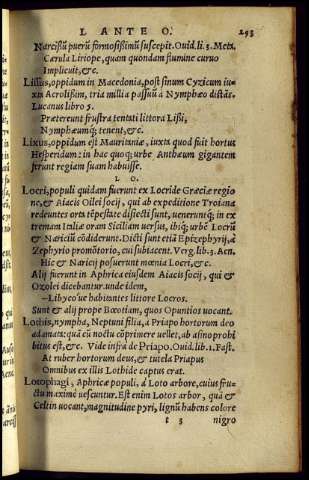 L ANTE O. 293
Narcissũ puerũ formosissimũ suscepit. Ouid. li. 3. Metæ.
Cærula Liriope, quam quondam flumine curuo
Implicuit, &c.
Lissus, oppidum in Macedonia, post sinum Cyzicum iu-
xta Acrolissum, tria millia passuũ a Nymphæo distãs.
Lucanus libro 5.
Prætereunt frustra tentati littora Lissi,
Nymphæumq; tenent, &c.
Lixus, oppidum est Mauritaniæ, iuxta quod fuit hortus
Hesperidum: in hac quoq; urbe Anthæum gigantem
ferunt regiam suam habuisse.
L O.
Locri, populi quidam fuerunt ex Locride Græciæ regio
ne, & Aiacis Oilei socij, qui ab expeditione Troiana
redeuntes orta tẽpestate disiecti sunt, uenerũntq; in ex
tremam Italiæ oram Siciliam uersus, ibiq; urbẽ Locrũ
& Næriciũ cõdiderunt. Dicti sunt etiã Epizephyrij, a
Zephyrio promõtorio, cui subiacent. Verg. lib. 3. Aen.
Hic & Naricij posuerunt mœnia Locri, &c.
Alij fuerunt in Aphrica eiusdem Aiacis socij, qui &
Ozolei dicebantur. unde idem,
—Libyco'ue habitantes littore Locros.
Sunt & alij prope Bœotiam, quos Opuntios uocant.
Lothis, nympha, Neptuni filia, a Priapo hortorum deo
adamata: quã cũ noctu cõprimere uellet, ab asino prohi
bitus est, &c. Vide infra de Priapo. Ouid. lib. 1. Fast.
At ruber hortorum deus, & tutela Priapus
Omnibus ex illis Lothide captus erat.
Lotophagi, Aphricæ populi, a Loto arbore, cuius fru-
ctu maximè uescuntur. Est enim Lotos arbor, quã &
Celtin uocant, magnitudine pyri, lignũ habens colore
t 3 nigro